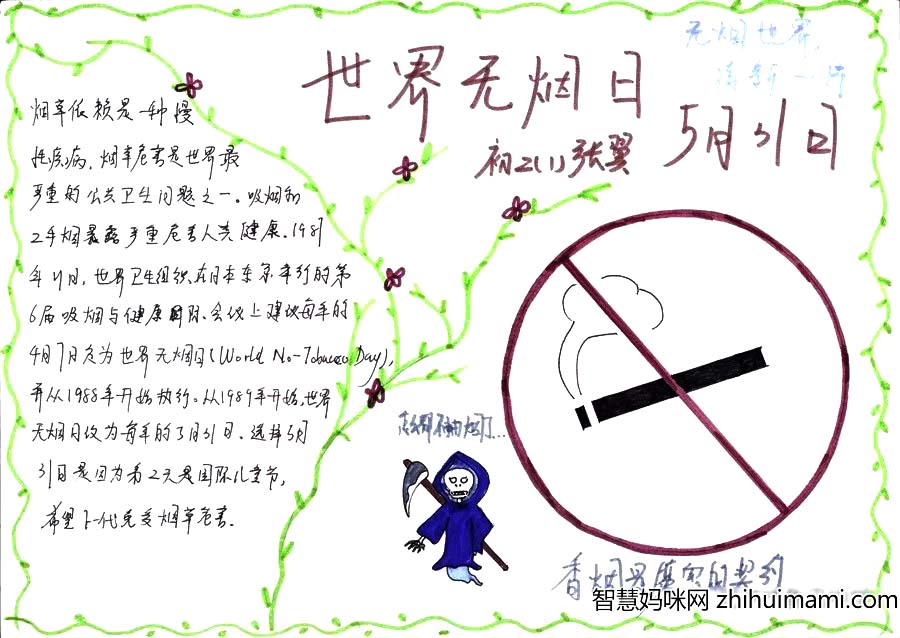 无烟世界,
清新一行
世界无烟日
5月31日
初2(1)张翼
烟草依赖是一种慢
性疾病,烟草危害是世界最
严重的公共卫生问题之一。吸烟和
2手烟暴露严重危害人类健康。1987
年11月,世界卫生组织在日本东京举行的第
6届吸烟与健康国际会议上建议每年的
4月7日定为世界无烟日(World No-Tobacco Day),
并从1988年开始执行。从1989年开始,世界
无烟日改为每年的5月31日。选择5月
31日是因为第2天是国际儿童节,
希望下一代免受烟草危害.
香烟与 的契约
智慧妈咪网 zhihuimami.com